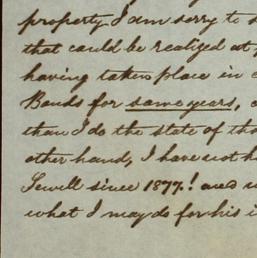 property I am sorry to s
that could be realized at
having taken place in
Bonds for some years,
than I do the state of
other hand, I have not h
Sewell since 1877! and
what I may do for his i